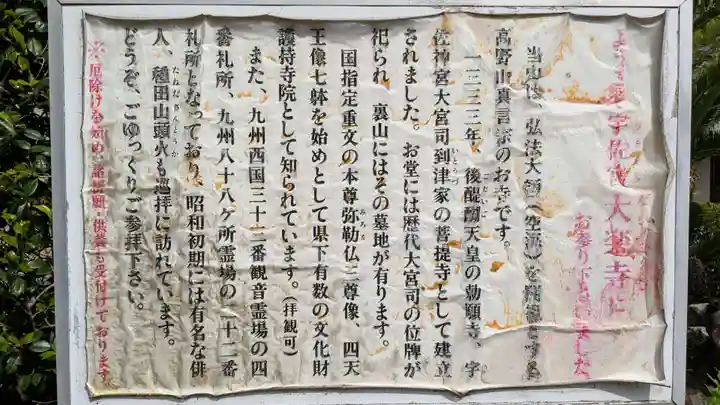 ようこそ宇佐大楽寺に
お参り下さいました
当山は、弘法大師(空海)を開祖とする
高野山真言宗のお寺です。
一三三三年、後醍醐天皇の勅願寺、宇
佐神宮大宮司到津家の菩提寺として建立
されました。お堂には歴代大宮司の位牌が
祀られ、裏山にはその墓地が有ります。
国指定重文の本尊弥勒仏三尊像、四天
王像七躰を始めとして県下有数の文化財
護持寺院として知られています。(拝観可)
また、九州西国三十三番観音霊場の四
番札所、九州八十八ヶ所霊場の二十二番
札所となっており、昭和初期には有名な俳
人、種田山頭火も巡拝に訪れています。
どうぞ、ごゆっくりご参拝下さい。
※厄除けを始め、諸祈願・供養も受付けております